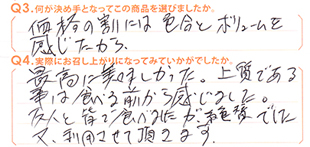 Q3.何が決め手となってこの商品を選びましたか。
価格の割には色合とボリュームを
感じたから
Q4.実際にお召し上がりになってみていかがでしたか。
最高に美味しかった。上質である
事は食べる前から感じました。
友人と皆で食べましたが、絶賛でした
又、利用させて頂きます。